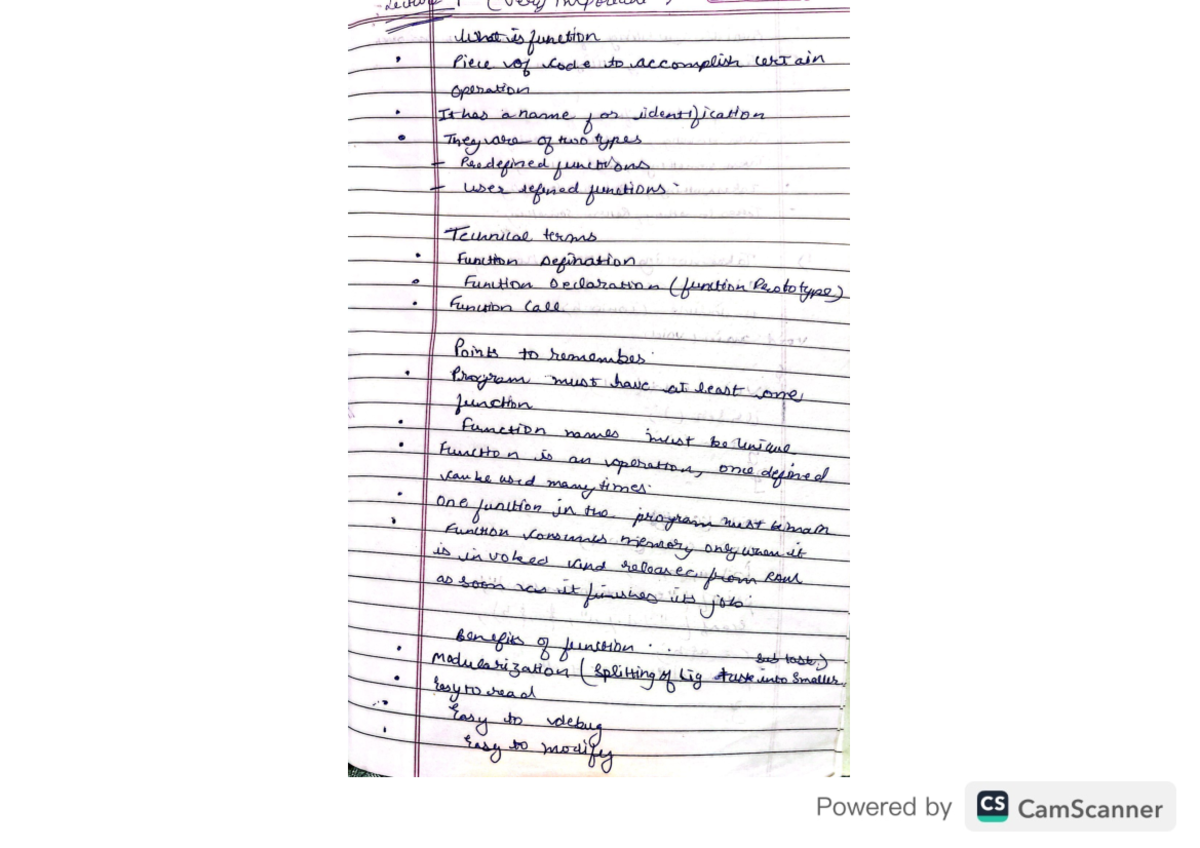 Lecture 1 (Very Important)
What is function
• Piece of code to accomplish certain
operation
• It has a name for identification
• They are of two types
- Predefined functions
- User defined functions.
Technical terms
• Function Defination
• Function Declaration (function Prototype)
• Function Call
Points to remember
• Program must have at least one
function
• Function names must be unique
• Function is an operation, once defined
can be used many times.
• One function in the program must be main
• Function consumes memory only when it
is invoked and released from RAM
as soon as it finishes its job.
Benefits of function
• Modularization (Splitting of big task into smaller
sub task)
• Easy to read
• Easy to debug
• Easy to modify
Powered by CS CamScanner